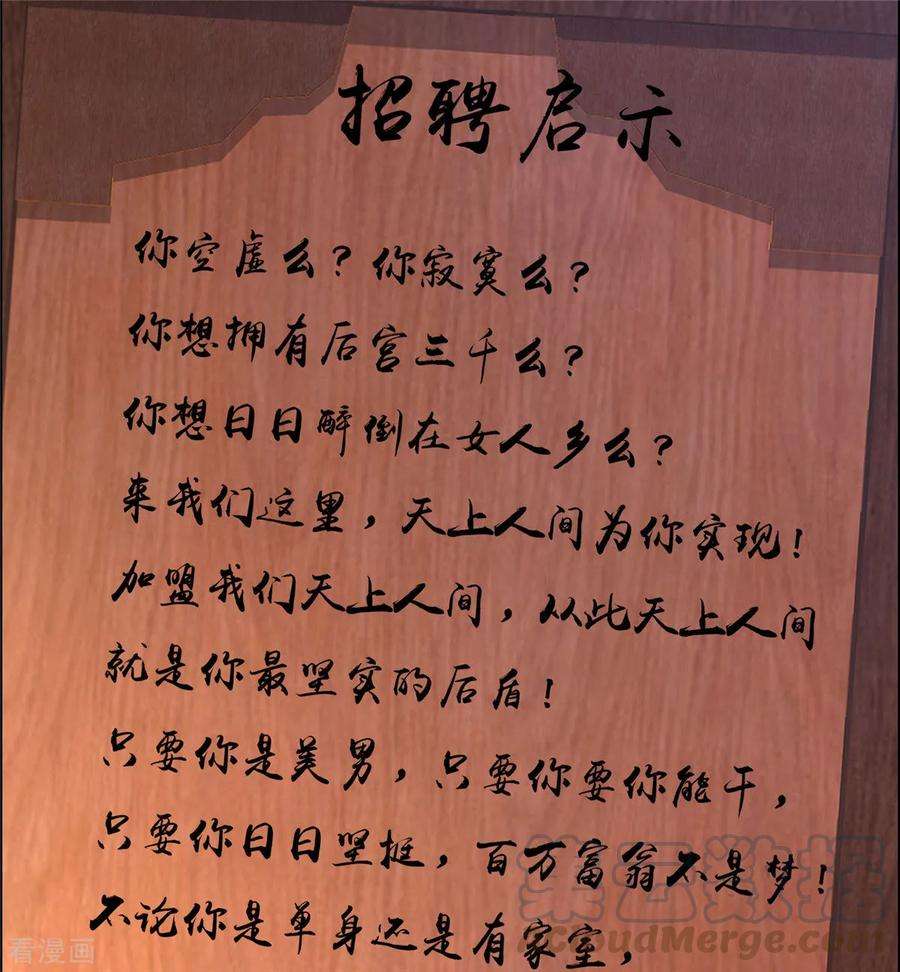 招聘启示
你空虚么？你寂寞么？
你想拥有后宫三千么？
你想日日醉倒在女人乡么？
来我们这里，天上人间为你实现！
加盟我们天上人间，从此天上人间
就是你最坚实的后盾！
只要你是美男，只要你要你能干，
只要你日日坚挺，百万富翁不是梦！
不论你是单身还是有家室，
看漫画
集云数据
CloudMerge.com